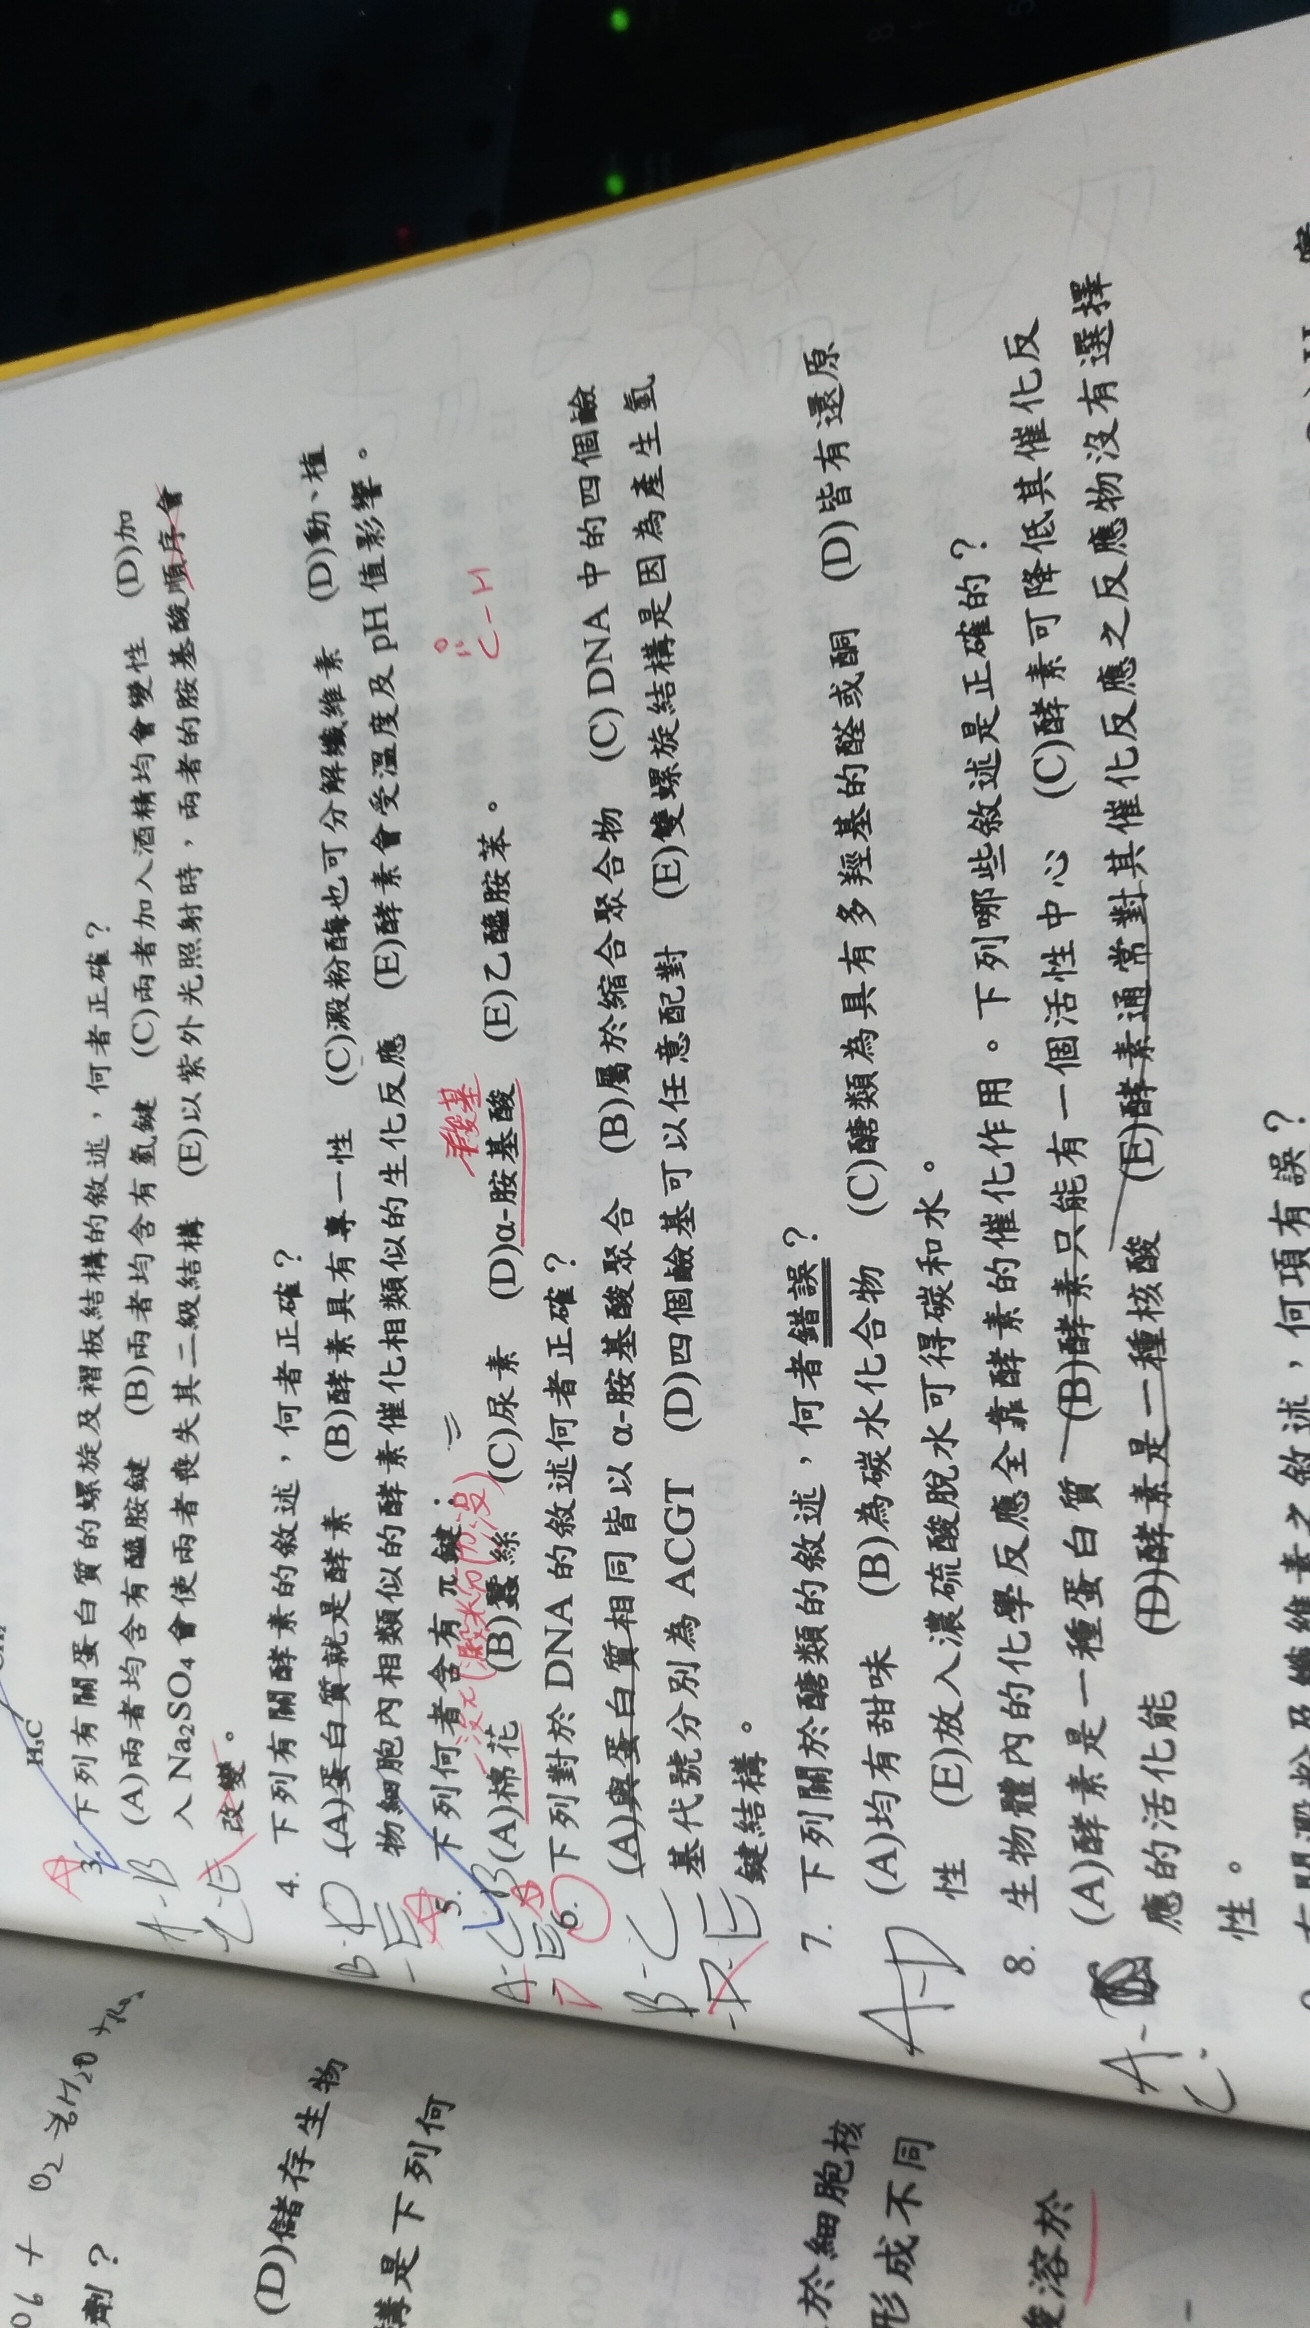 H₃C
3. 下列有關蛋白質的螺旋及褶板結構的敘述，何者正確？
(A)兩者均含有醯胺鍵 (B)兩者均含有氫鍵 (C)兩者加入酒精均會變性 (D)加
入 Na₂SO₄ 會使兩者喪失其二級結構 (E)以紫外光照射時，兩者的胺基酸順序會
改變。
A-B
C-E
4. 下列有關酵素的敘述，何者正確？
(A)蛋白質就是酵素 (B)酵素具有專一性 (C)澱粉酶也可分解纖維素 (D)動、植
物細胞內相類似的酵素催化相類似的生化反應 (E)酵素會受溫度及 pH 值影響。
B-D
-E
5. 下列何者含有 π 鍵：
(A)棉花 (B)蠶絲 (C)尿素 (D)α-胺基酸 (E)乙醯胺苯。
羧基
O
C-H
6. 下列對於 DNA 的敘述何者正確？
(A)與蛋白質相同皆以 α-胺基酸聚合 (B)屬於縮合聚合物 (C) DNA 中的四個鹼
基代號分別為 ACGT (D)四個鹼基可以任意配對 (E)雙螺旋結構是因為產生氫
鍵結構。
B-C
-D-E
7. 下列關於醣類的敘述，何者錯誤？
(A)均有甜味 (B)為碳水化合物 (C)醣類為具有多羥基的醛或酮 (D)皆有還原
性 (E)放入濃硫酸脫水可得碳和水。
A-D
8. 生物體內的化學反應全靠酵素的催化作用。下列哪些敘述是正確的？
(A)酵素是一種蛋白質 (B)酵素只能有一個活性中心 (C)酵素可降低其催化反
應的活化能 (D)酵素是一種核酸 (E)酵素通常對其催化反應之反應物沒有選擇
性。
A-
C
有關澱粉及纖維素之敘述，何項有誤？
劑？
(D)儲存生物
構是下列何
於細胞核
形成不同
溶於